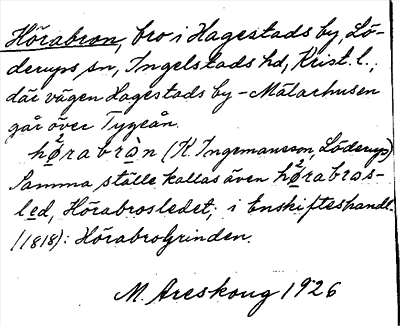 Hörabron, bro i Hagestads by, Lö-
deryps sn, Ingelstads hd, Krist. l.;
där vägen Hagestads by - Mälarhusen
går över Tygeån.
hø̀rabrọn (K. Ingemansson, Löderup)
Samma ställe kallas även hø̀rabros-
led, Hörabrosledet; i Enskifteshandl.
(1818): Hörabrogrinden.
M. Areskoug 1926